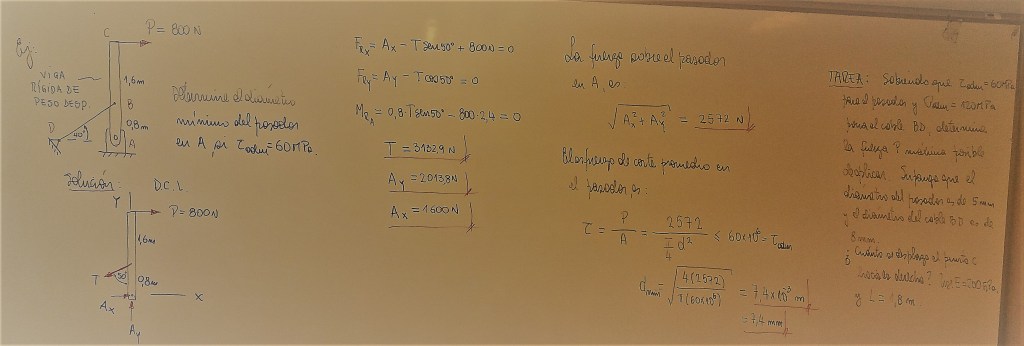 Ej:
C
P = 800N
VIGA
RÍGIDA DE
PESO DESP.
1,6m
B
0,8m
D
40°
A
Determine el diámetro
mínimo del pasador
en A, si τadm = 60MPa.
Solución: D.C.L.
Y
P = 800N
1,6m
T
50°
0,8m
X
Ax
Ay
FRx = Ax − T sen50° + 800N = 0
FRy = Ay − T cos50° = 0
MRA = 0,8·T sen50° − 800·2,4 = 0
T = 3132,9N
Ay = 2013,8N
Ax = 1600N
La fuerza sobre el pasador
en A, es:
√(Ax² + Ay²) = 2572 N
El esfuerzo de corte promedio en
el pasador, es:
τ = P/A = 2572/(π/4 d²) ≤ 60×10⁶ = τadm
dmin = √(4(2572)/π(60×10⁶)) = 7,4×10⁻³ m
= 7,4 mm
TAREA: Sabiendo que τadm = 60MPa
para el pasador y σadm = 120MPa
para el cable BD, determine
la fuerza P máxima posible
de aplicar. Suponga que el
diámetro del pasador es de 5mm
y el diámetro del cable BD es de
8mm.
¿Cuánto se desplaza el punto C
hacia la derecha? E=200GPa
y L = 1,8 m